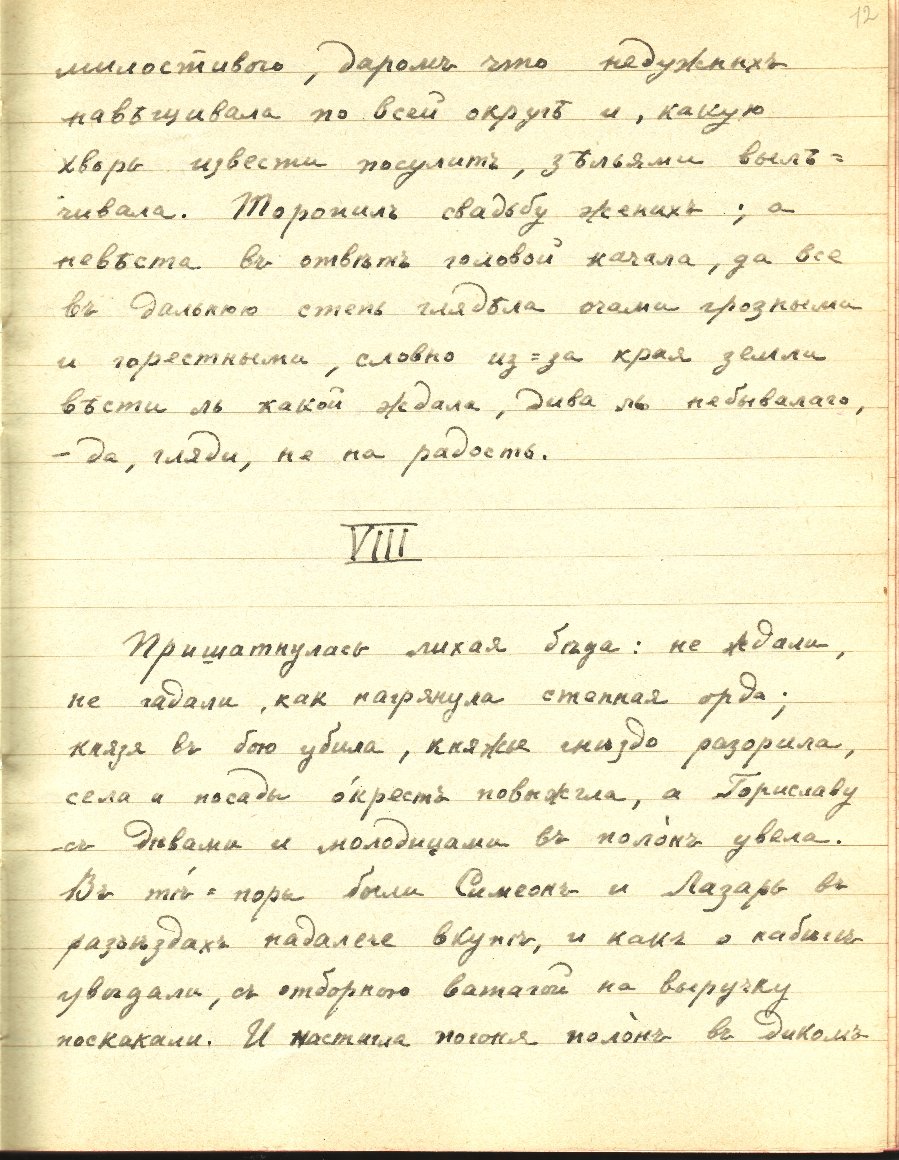 12
милостиваго, даромъ что недужныхъ
навѣщивала по всей округѣ и, какую
хворь извести посулитъ, зѣльями вылѣ=
чивала. Торопилъ свадьбу женихъ; а
невѣста въ отвѣтъ головой качала, да все
въ дальнюю степь глядѣла очами грозными
и горестными, словно из=за края земли
вѣсти ль какой ждала, дива ль небывалаго,
– да, гляди, не на радость.
VIII
Пришатнулась лихая бѣда: не ждали,
не гадали, как нагрянула степная орда;
князя въ бою убила, княжье гнѣздо разорила,
села и посады о́крестъ повыжгла, а Гориславу
съ дѣвами и молодицами въ поло́нъ увела.
Въ тѣ́=поры были Симеонъ и Лазарь въ
разъѣздахъ надалече вкупѣ, и какъ о набѣгѣ
увѣдали, съ отборною ватагой на выручку
поскакали. И настигла погоня поло́нъ въ дикомъ